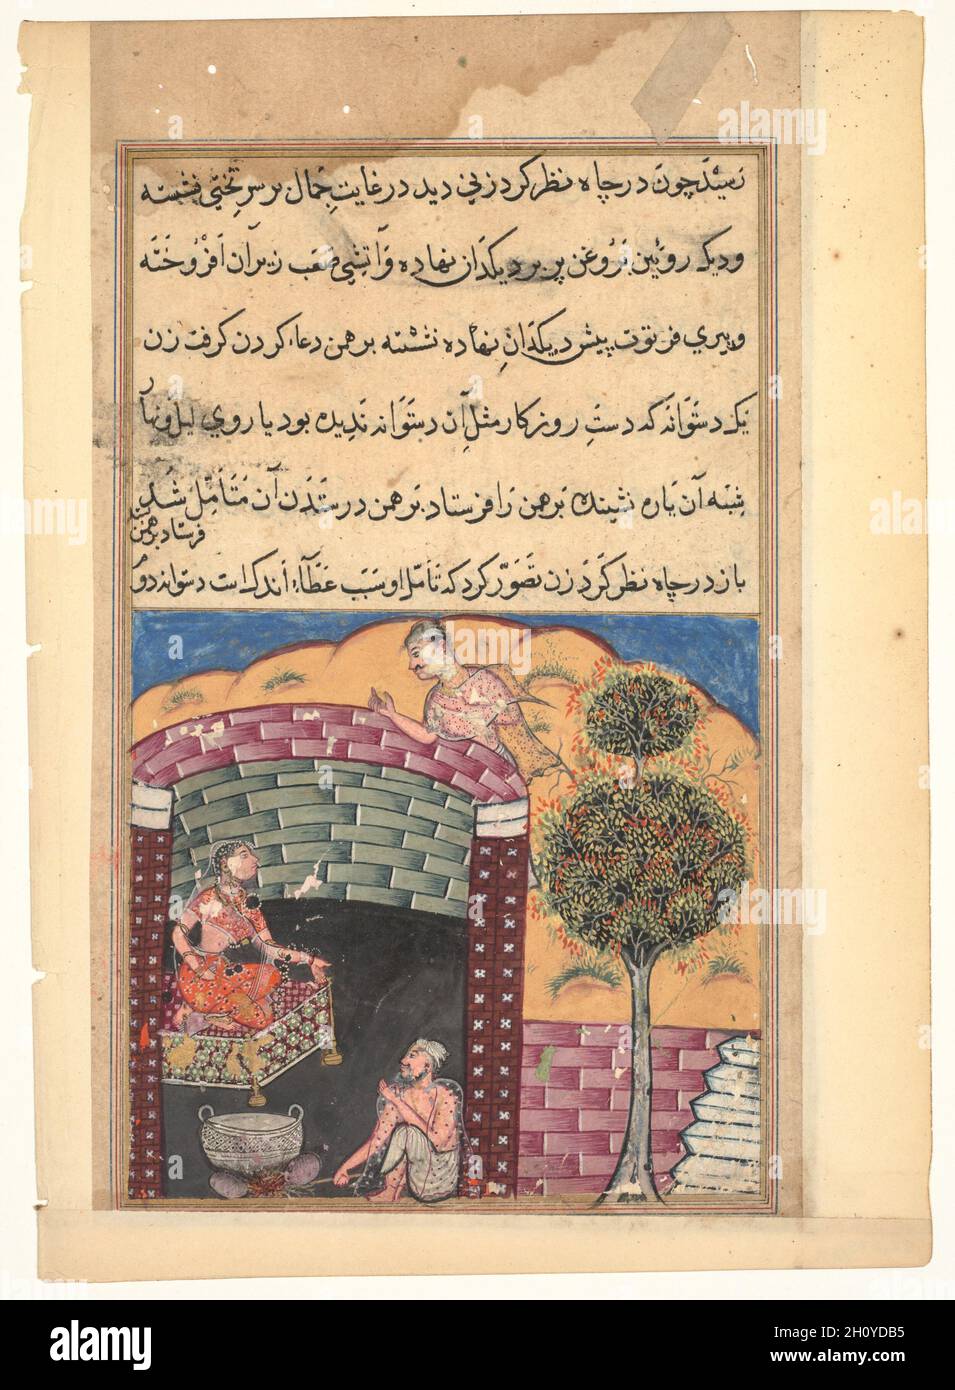 رسید چون در چاه نظر کرد زنی دید در غایت جمال بر سر تختی نشسته
و دیک رویین بروغن پر بر دیکدان نهاده و آتشی صعب زیر آن افروخته
و پیری فرتوت پیش دیکدان نهاده نشسته برهمن دعا کردن کرفت زن
یک دستوانه که دست روزکار مثل آن دستوانه ندیده بود یا روی لیل و نهار
شبه آن یاره نشینده برهمن را فرستاد برهمن در ستدن آن متأمل شد
فرستاد برهمن
باز در چاه نظر کرد زن تصور کرد که تأمل او سبب عطاء اندک است دستوانه دوم
alamy
Image ID: 2H0YDB5
www.alamy.com